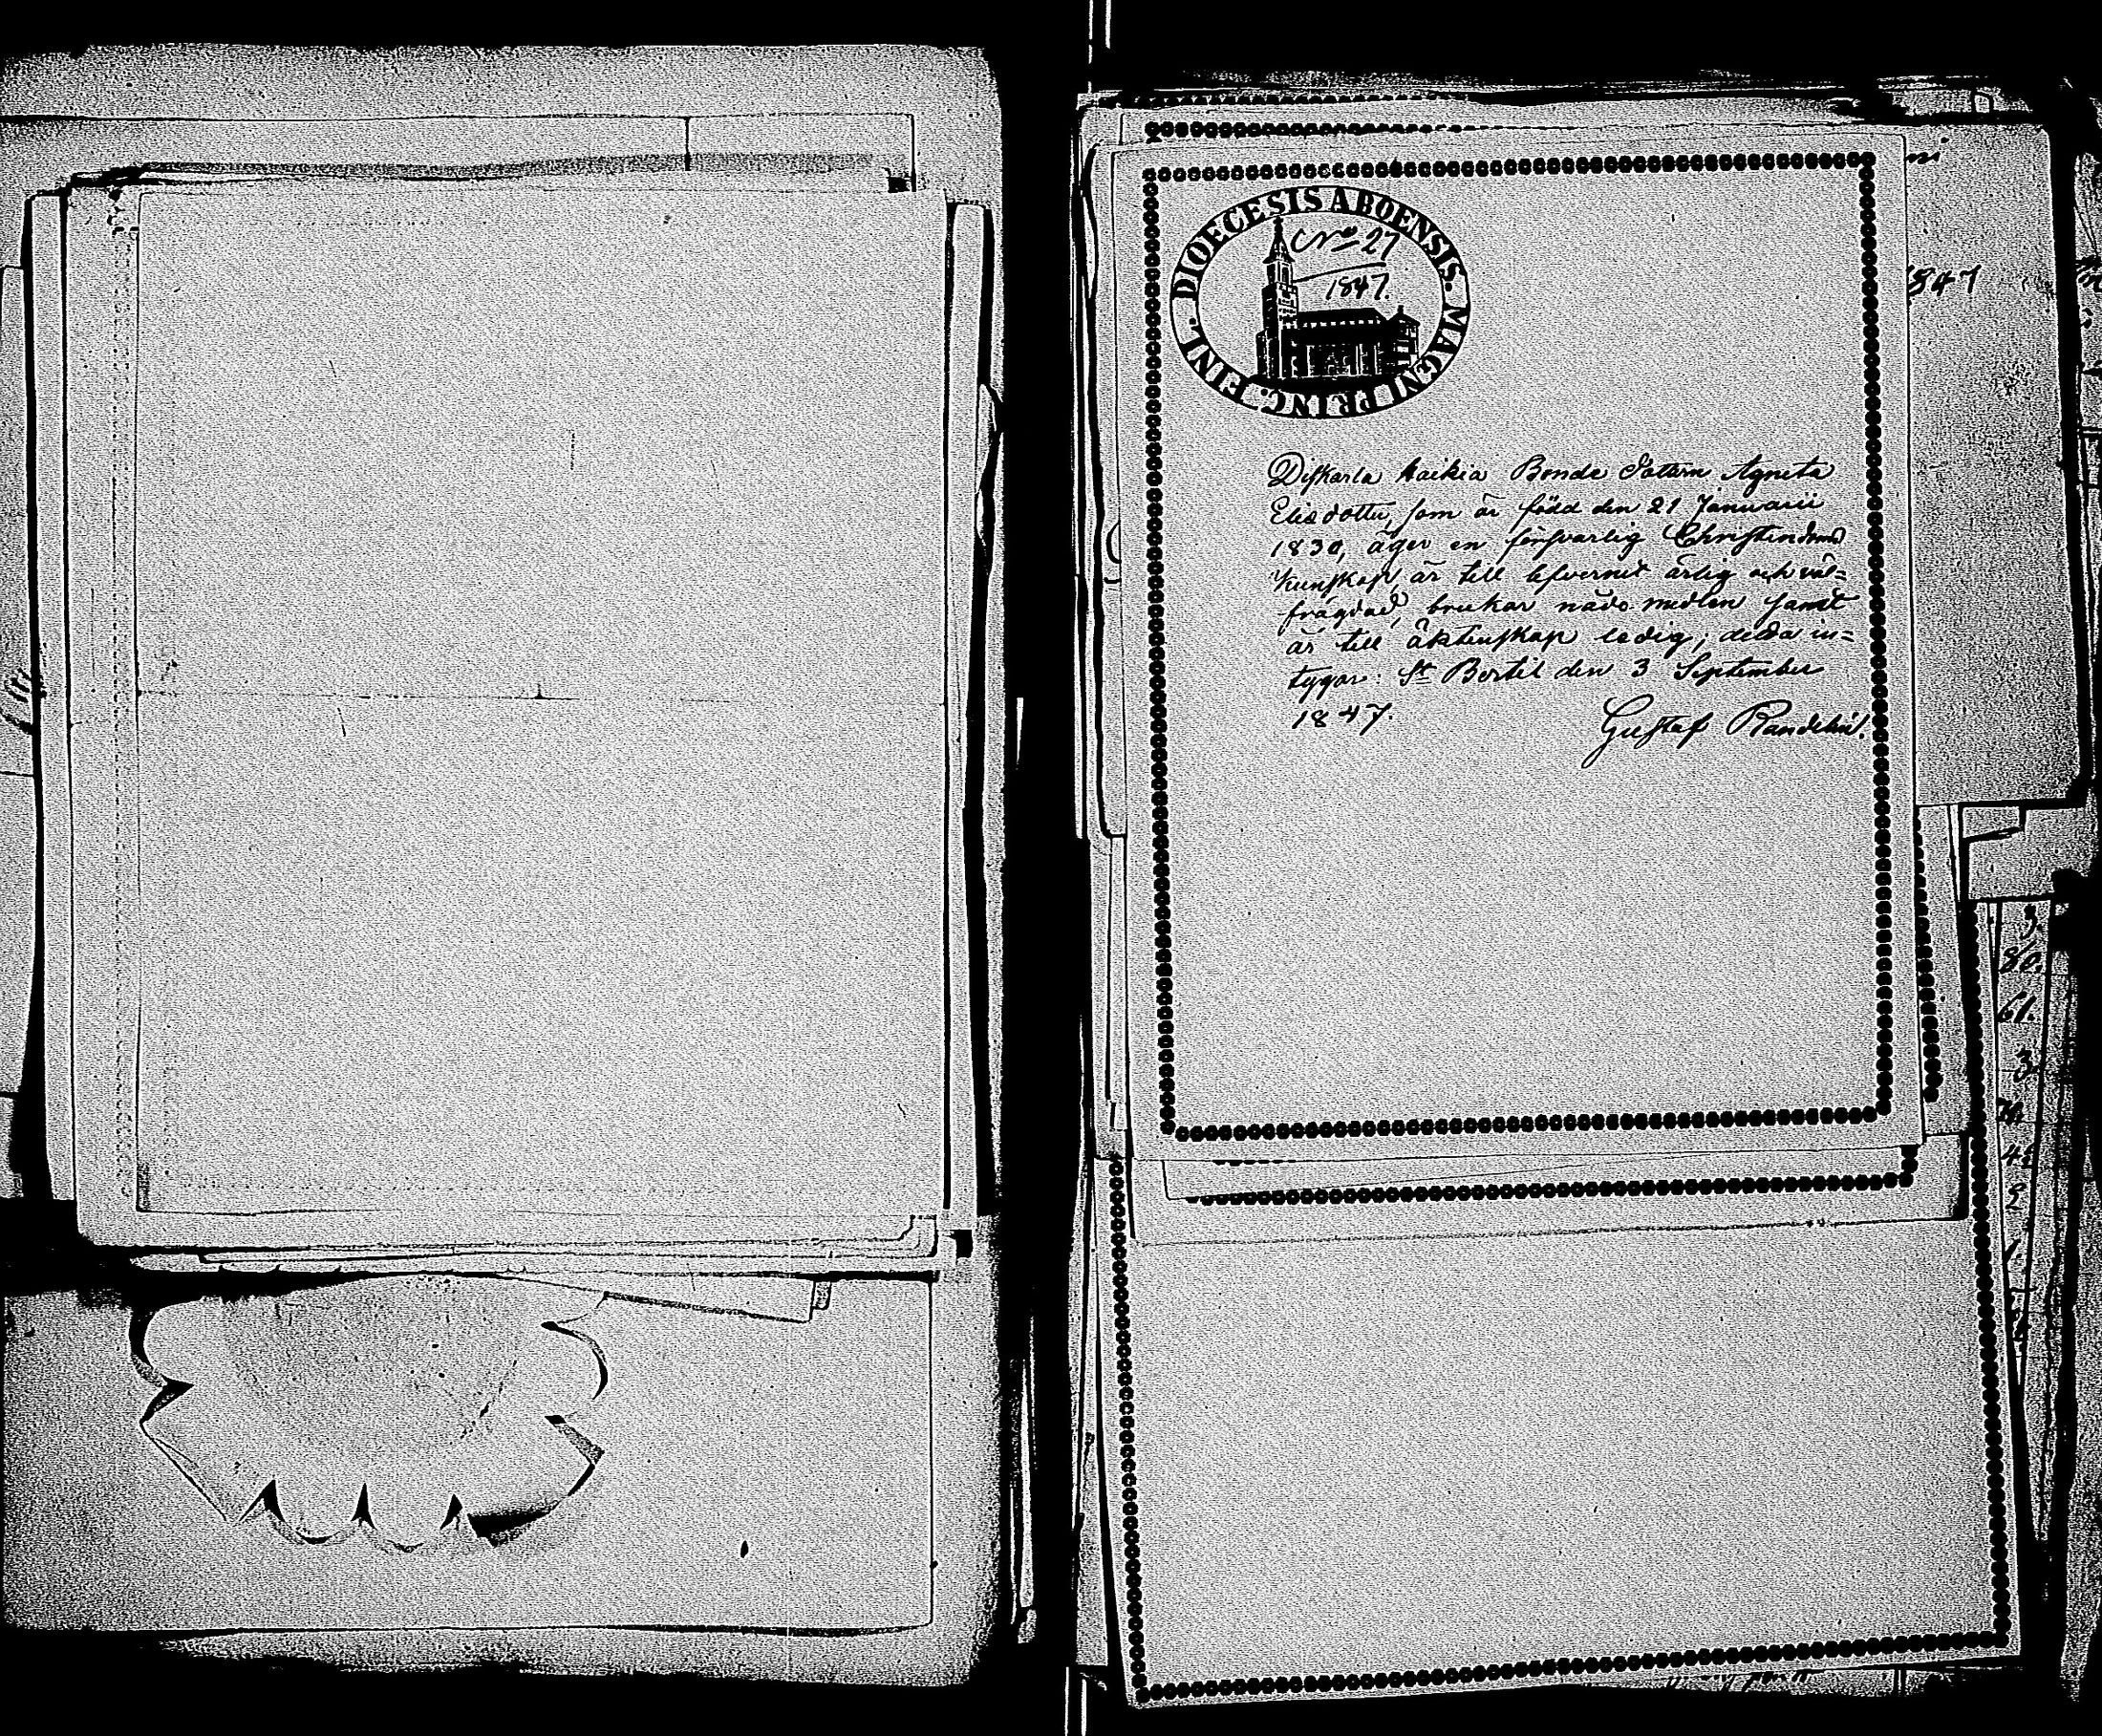 DIOECESIS ABOENSIS. MAGNI PRINC. FINL.
No 27
1847.
Diskarla Kaikia Bonde Dottern Agneta
Elisdotter, som är född den 21 Januarii
1830, äger en försvarlig Christendoms
kunskap, är till lefvernet ärlig och väl=
frägdad, brukar nådemedlen samt
är till äktenskap ledig; detta in=
tygar: St Bertil den 3 September
1847.
Gustaf
1847
3.
80.
61.
3